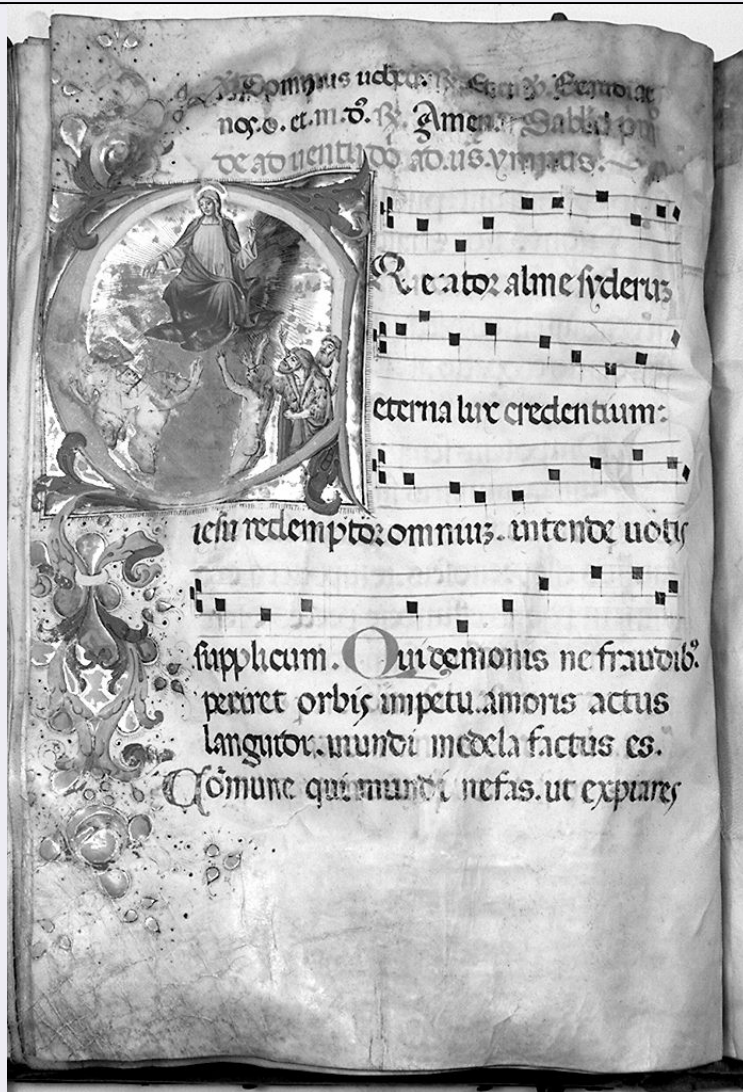 Dominus
nos. et. Amen. Sabb̄o
de aduentu dō ad. us. ympnus.
Creator alme syderuʒ
eterna lux credentium:
iesu redemptor omniuʒ. intende uotis
supplicum. Qui demonis ne fraudibꝰ.
periret orbis impetu. amoris actus
languidi. mundi medela factus es.
Cōmune qui mundi nefas. ut expiares